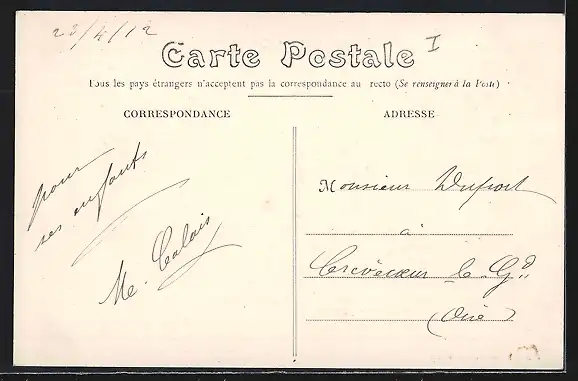 23/4/12
I
Carte Postale
Tous les pays étrangers n'acceptent pas la correspondance au recto (Se renseigner à la Poste)
CORRESPONDANCE
ADRESSE
pour
ses enfants
Me. Calais
Monsieur Dupont
à
Crèvecœur le Gd
(Oise)